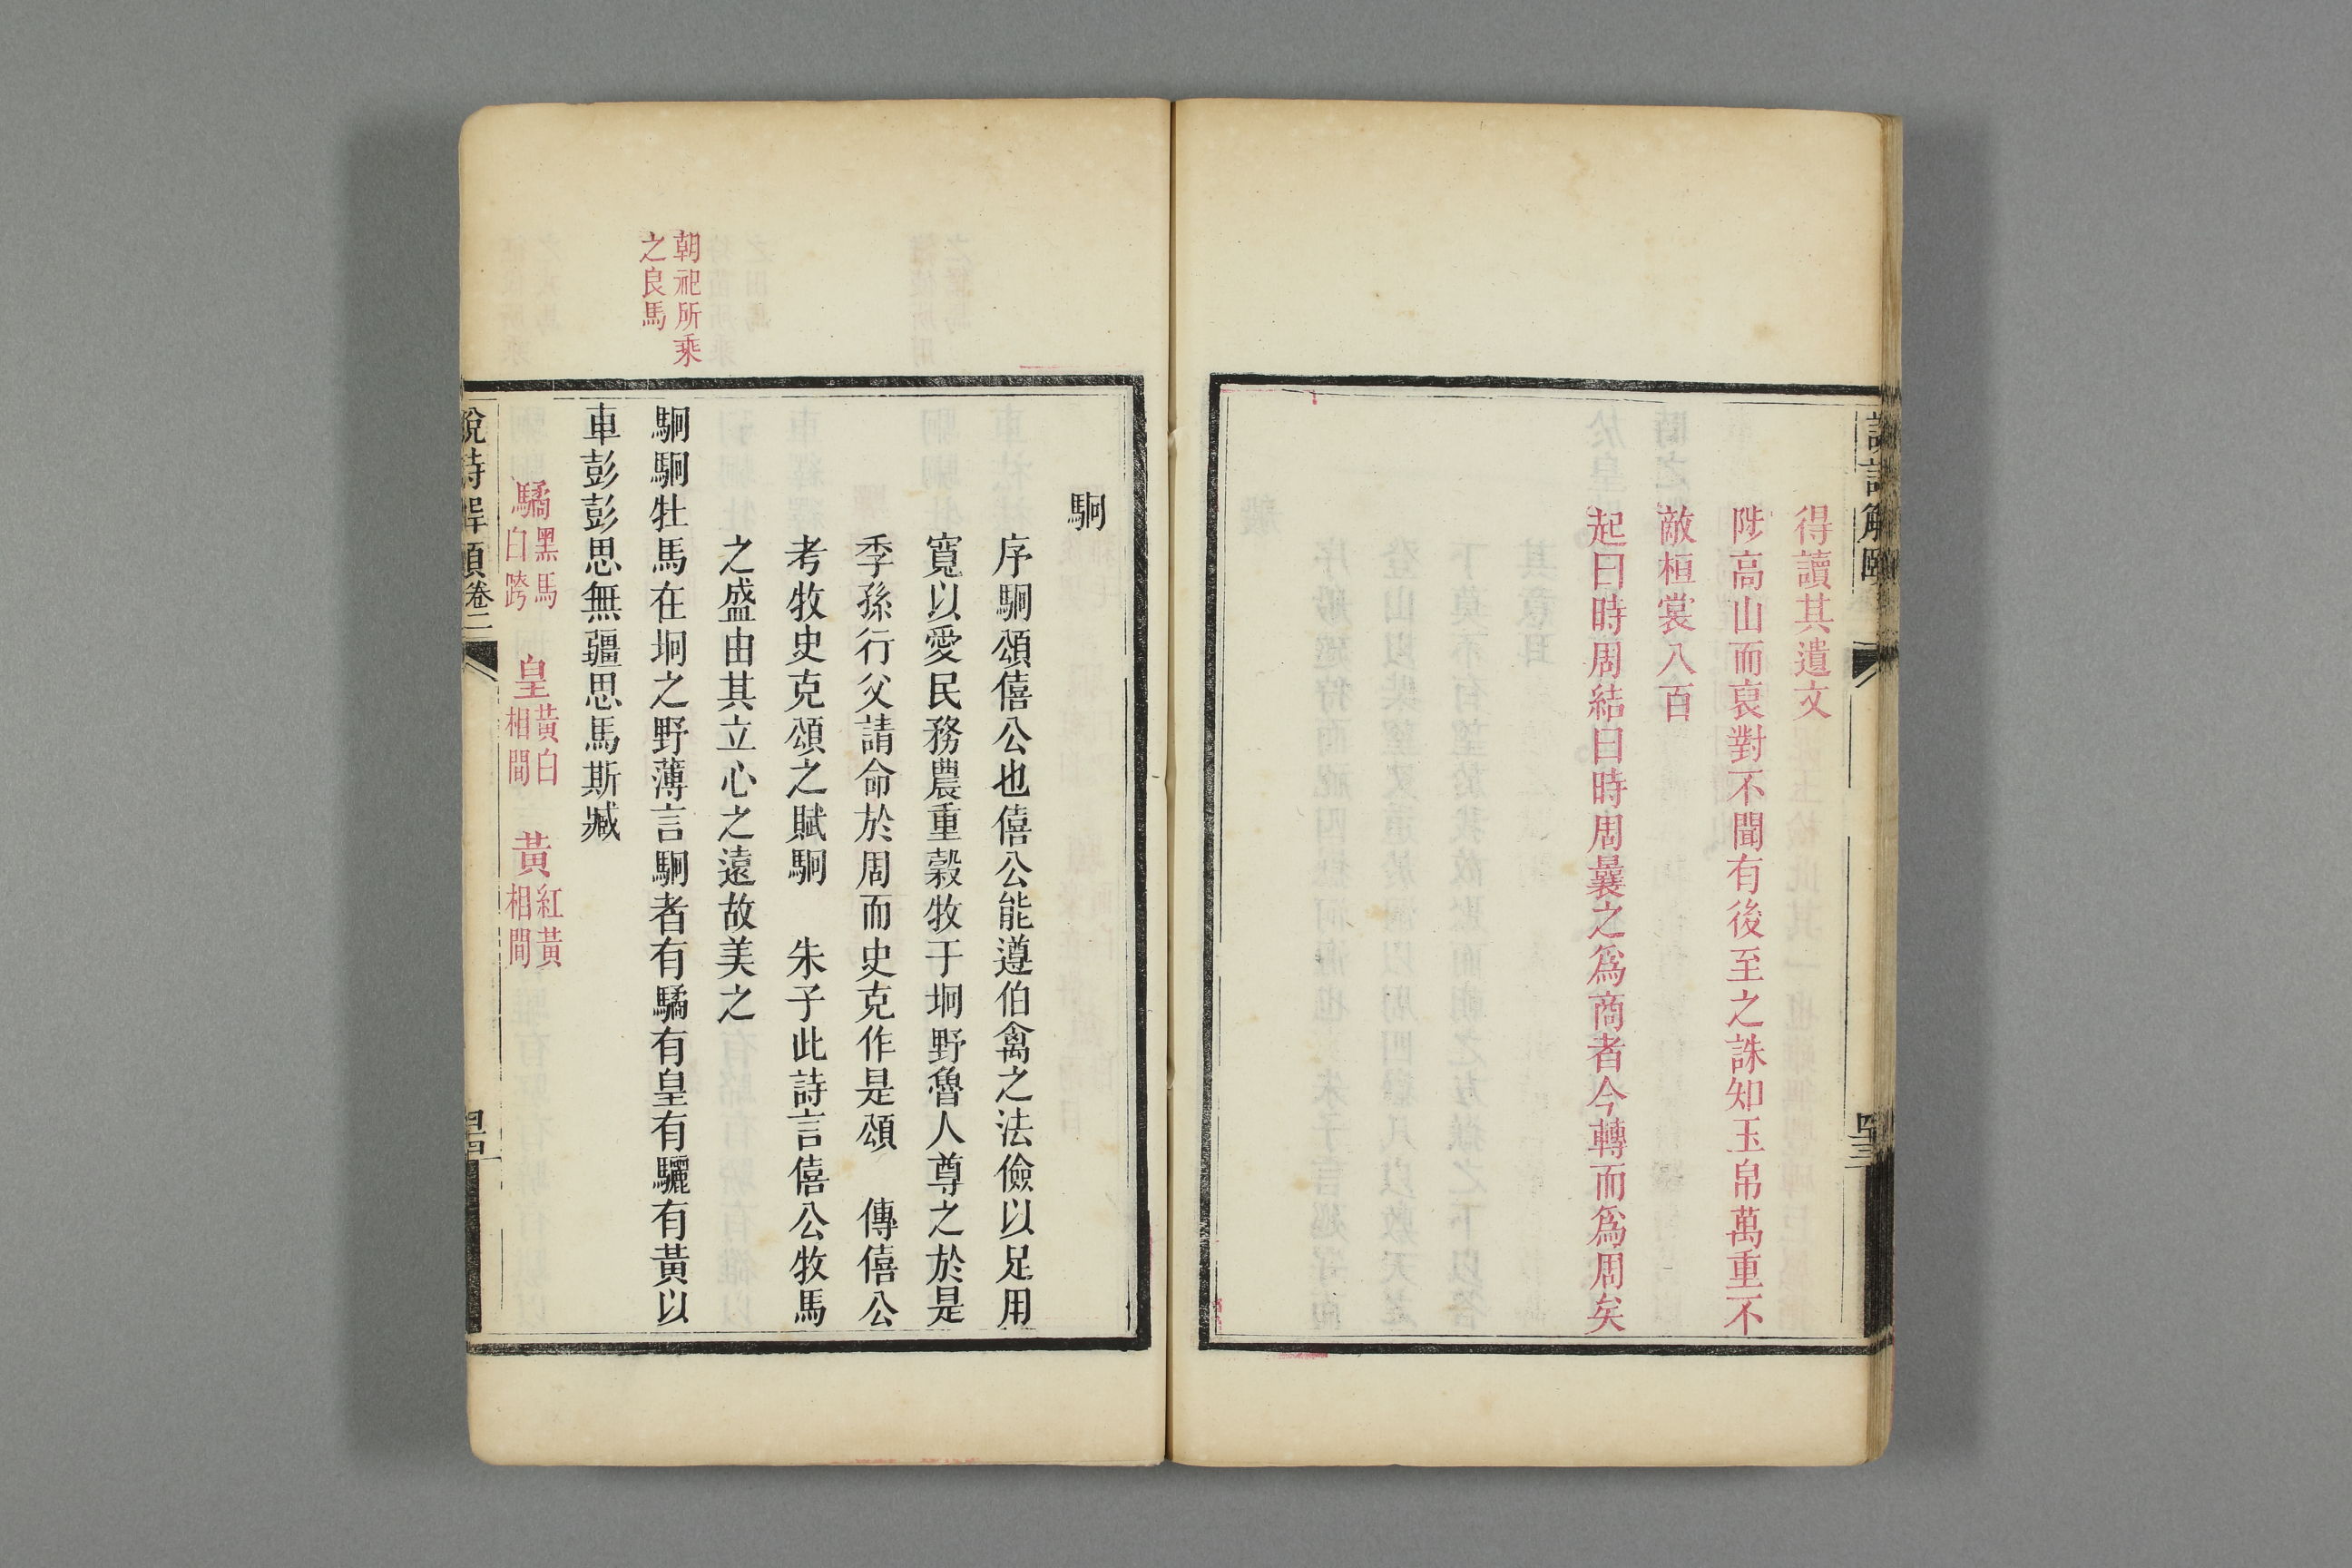 得讀其遺文
陟高山而裒對不聞有後至之誅知玉帛萬重不
敵桓裳八百
起曰時周結曰時周曩之爲商者今轉而爲周矣
駉
序駉頌僖公也僖公能遵伯禽之法儉以足用
寬以愛民務農重穀牧于坰野魯人尊之於是
季孫行父請命於周而史克作是頌　傳僖公
考牧史克頌之賦駉　朱子此詩言僖公牧馬
之盛由其立心之遠故美之
朝祀所乘
之良馬
駉駉牡馬在坰之野薄言駉者有驈有皇有驪有黃以
車彭彭思無疆思馬斯臧
驈黑馬白跨　皇黃白相間　黃紅黃相間
說詩解頤卷二